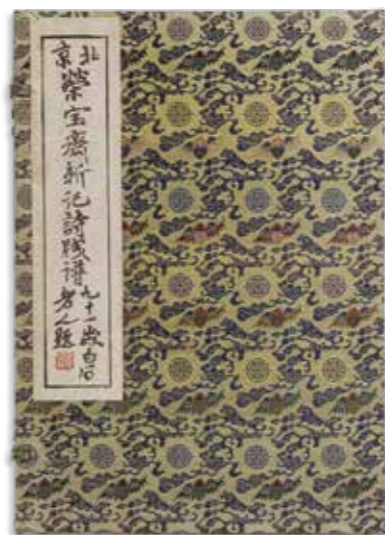 北京
榮宝齋新记詩牋谱
九十一歲白石
老人題